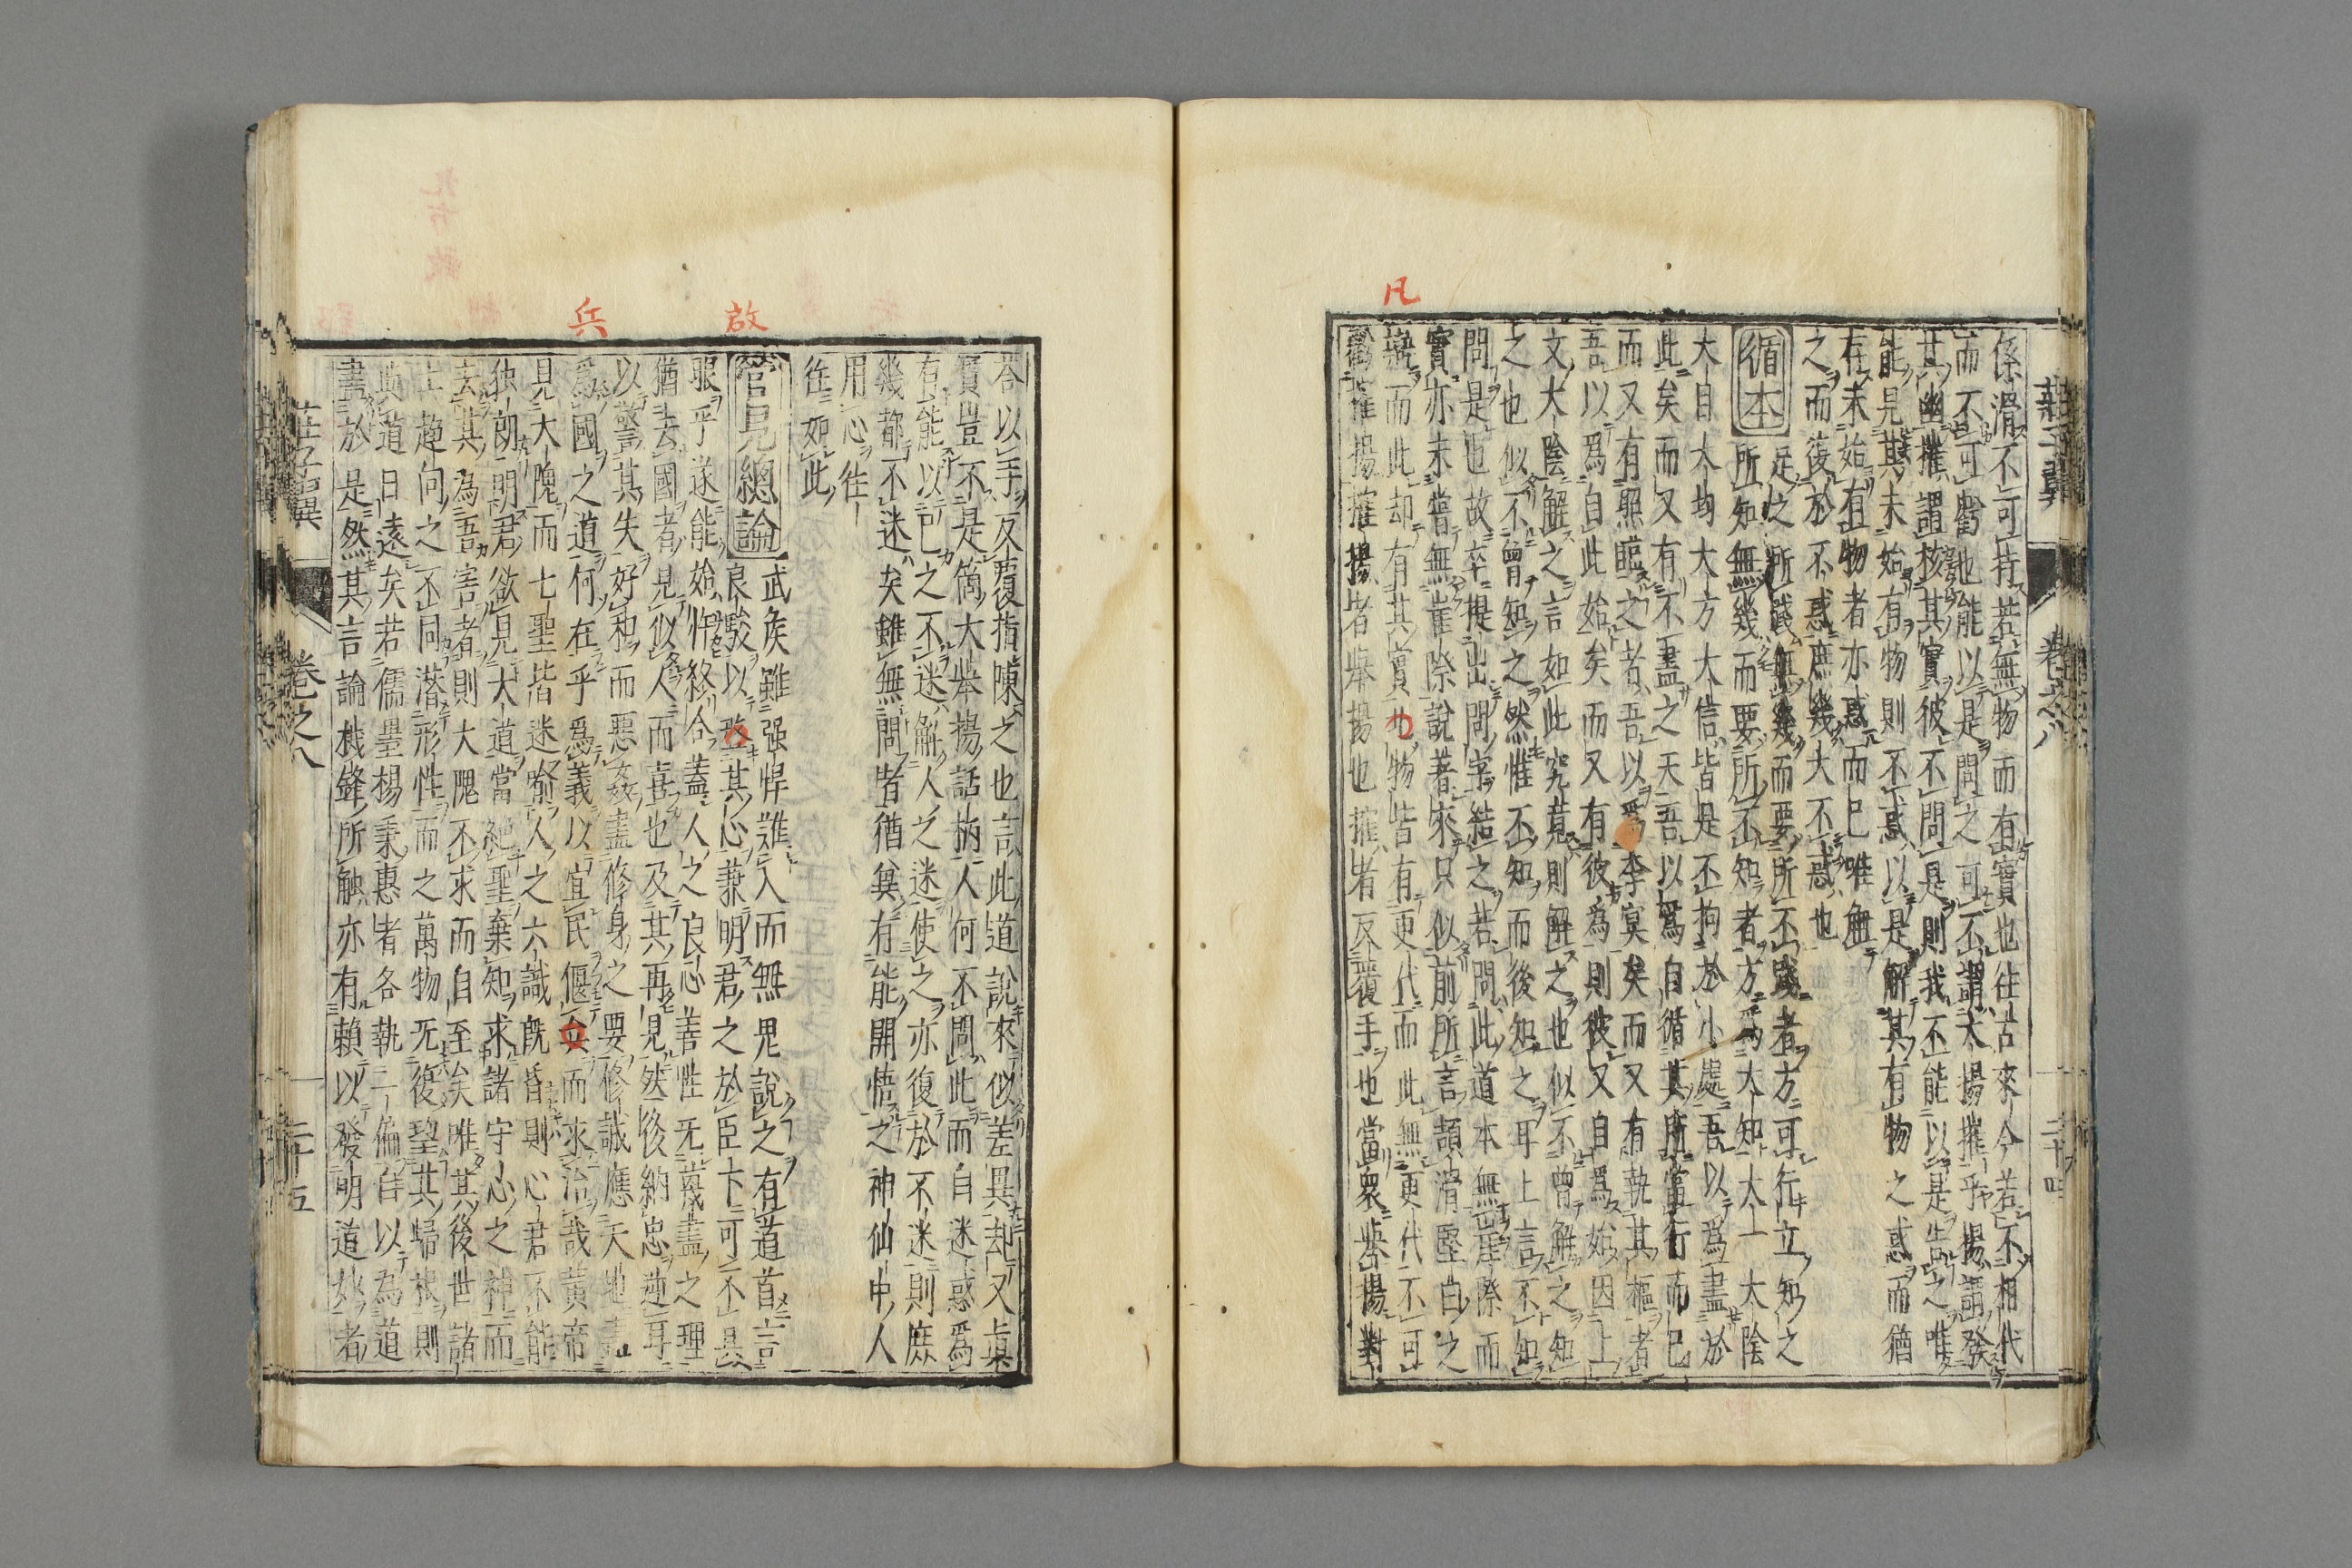 莊子翼 卷之八 二十四
係滑不可持若無物而有實也往古來今若不相代
而不可虧也能以是問之可不謂大揚搉乎揚謂發
其幽搉謂核其實彼不問是則我不能以是告之唯
能見其未始有物則不惑以是解其有物之惑而猶
有未始有物者亦惑而已唯無
之而後於不惑庶幾大不惑也
循本
足之所踐無幾而要所不踐者方可行立知之
所知無幾而要所不知者方爲大知大一大陰
大目大均大方大信皆是不拘於小處吾以爲盡於
此矣而又有不盡之天吾以爲自循其所當行而已
而又有照臨之者吾以爲李冥矣而又有執其樞者
吾以爲自此始矣而又有彼爲則彼又自爲始因上
文大陰解之言如此究竟則解之也似不曾解之知
之也似不曾知之然惟不知而後知之耳上言不知
問是也故卒提出問字結之若問此道本無崖際而
實亦未嘗無崖際說著來只似前所言頡滑堅白之
辯而此却有其實凡物皆有更代而此無更代不可
虧搉揚搉揚者舉揚也搉者反覆手也當衆舉揚對
答以手反覆指陳之也言此道說來似差異却又眞
實豈不是箇大舉揚話柄人何不問此而自迷惑爲
有能以己之不迷解人之迷使之亦復於不迷則庶
幾都不迷矣雖無問者猶與有能開悟之神仙中人
用心往
往如此
管見總論
武矦雖强悍難入而無鬼說之有道首言
良駁以啟其心兼明君之於臣下可不具
眼乎遂能始忤終合蓋人之良心善性旡蔑盡之理
猶去國者見似人而喜也及其再見然後納忠逆耳
以警其失好和而惡姦盡修身之要修誠應天地
爲國之道何在乎爲義以宜民偃兵而求治哉黃帝
見大隗而七聖皆迷喻人之六識旣昏則心君不能
独朗明君欲見大道當絕聖棄知求諸守心之神而
去其為吾害者則大隗不求而自至矣唯其後世諸
士趣向之不同潛形性而之萬物旡復望其歸根則
此道日遠矣若儒墨楊秉惠者各執一偏自以為道
盡於是然其言論機鋒所触亦有賴以發明道妙者
莊子翼 卷之八 二十五
凡
啟
兵